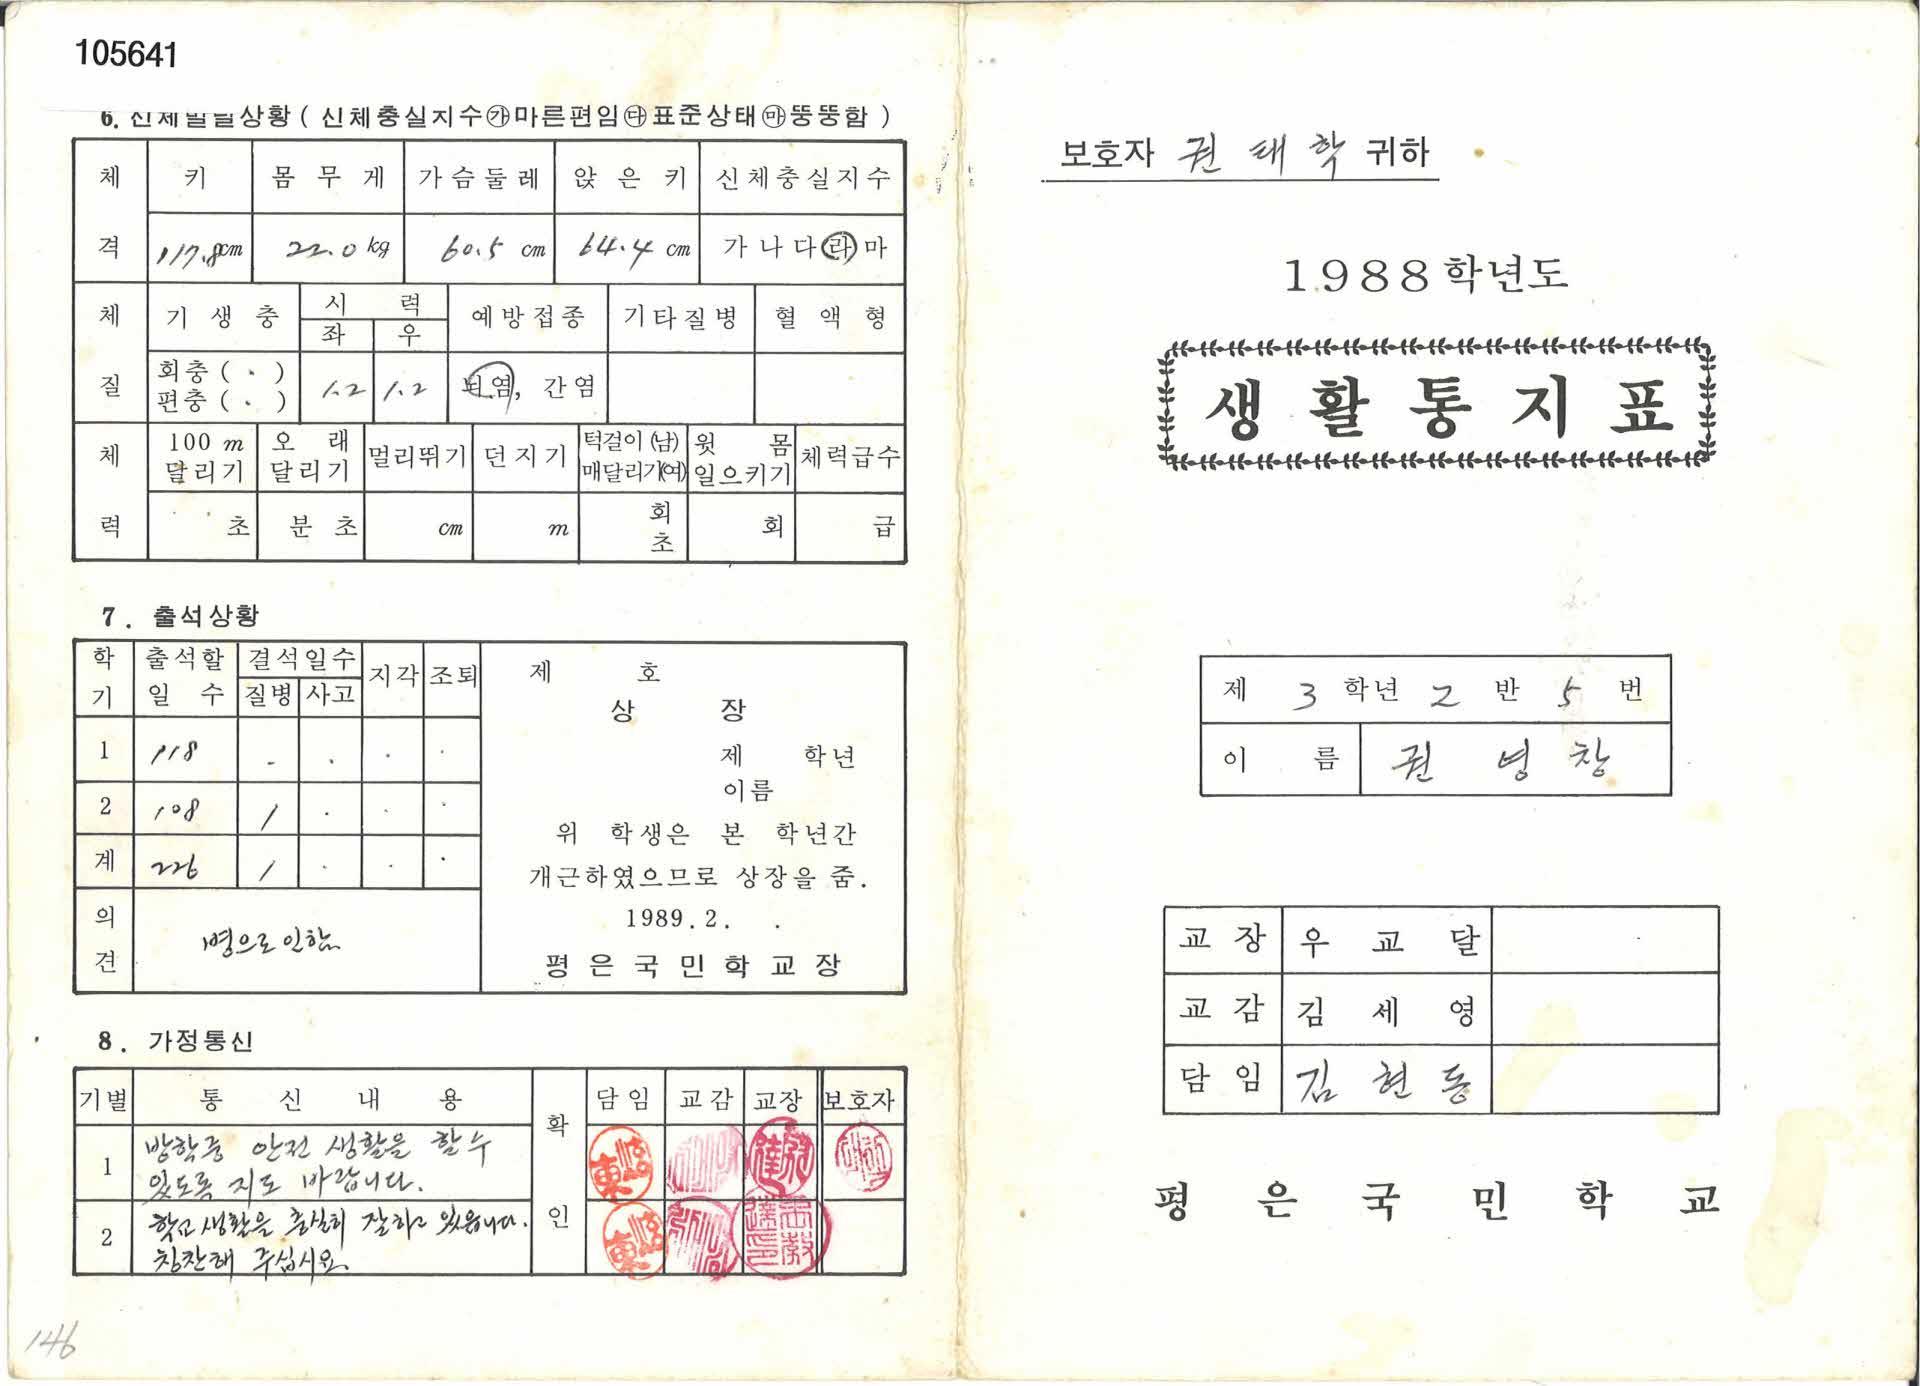 105641
6. 신체발달상황 ( 신체충실지수㉮마른편임㉰표준상태㉲뚱뚱함 )
체격 키 몸무게 가슴둘레 앉은키 신체충실지수
117.8cm 22.0kg 60.5cm 64.4cm 가나다라마
체질 기생충 시력 예방접종 기타질병 혈액형
좌 우
회충( · ) 1.2 1.2 뇌염, 간염
편충( · )
체력 100m 달리기 오래 달리기 멀리뛰기 던지기 턱걸이(남) 매달리기(여) 윗몸 일으키기 체력급수
초 분초 cm m 회 초 회 급
7. 출석상황
학기 출석할 일수 결석일수 지각 조퇴
질병 사고
1 118 · · · ·
2 108 1 · · ·
계 226 1 · · ·
의견 병으로 인함
제 호
상장
제 학년
이름
위 학생은 본 학년간
개근하였으므로 상장을 줌.
1989. 2. .
평은국민학교장
8. 가정통신
기별 통신내용 확인 담임 교감 교장 보호자
1 방학중 안전 생활을 할수
있도록 지도 바랍니다.
2 학교생활을 충실히 잘하고 있읍니다.
칭찬해 주십시요
146
보호자 권태학 귀하
1988학년도
생활통지표
제 3 학년 2 반 5 번
이름 권영창
교장 우교달
교감 김세영
담임 김현동
평은국민학교